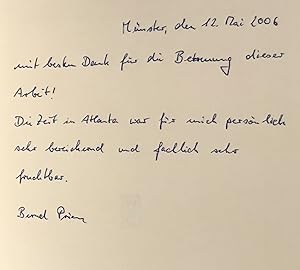 Münster, den 12. Mai 2006
mit besten Dank für die Betreuung dieser
Arbeit!
Die Zeit in Atlanta war für mich persönlich
sehr bereichernd und fachlich sehr
fruchtbar.
Bernd Prien